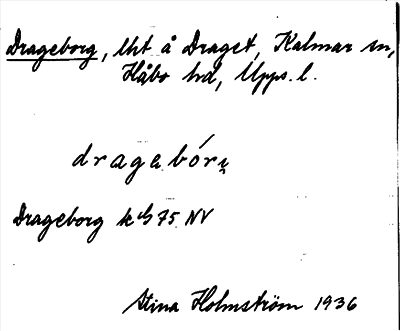 Drageborg, lht å Draget, Kalmar sn,
Håbo hd, Upps. l.
dragebórų
Drageborg k 75 NV
Stina Holmström 1936